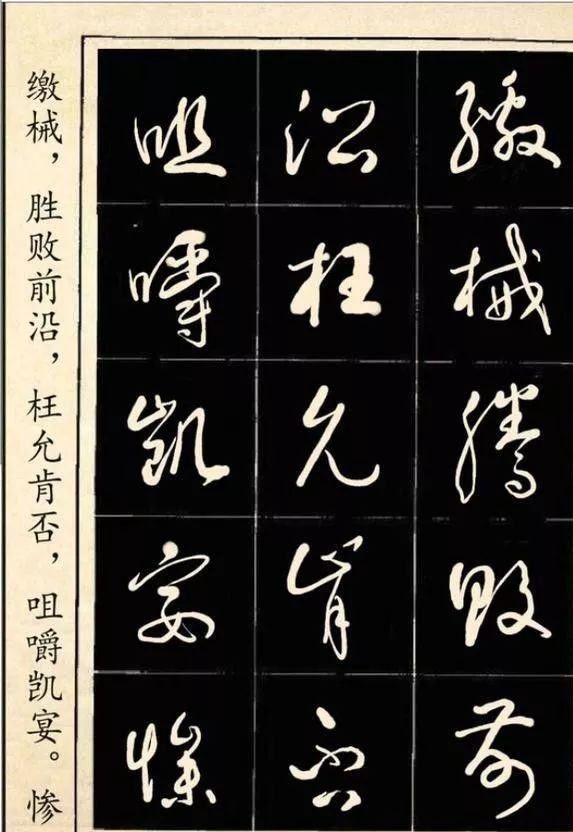 繳械勝敗前
沿枉允肯否
咀嚼凱宴慘
缴械，胜败前沿，枉允肯否，咀嚼凯宴。惨